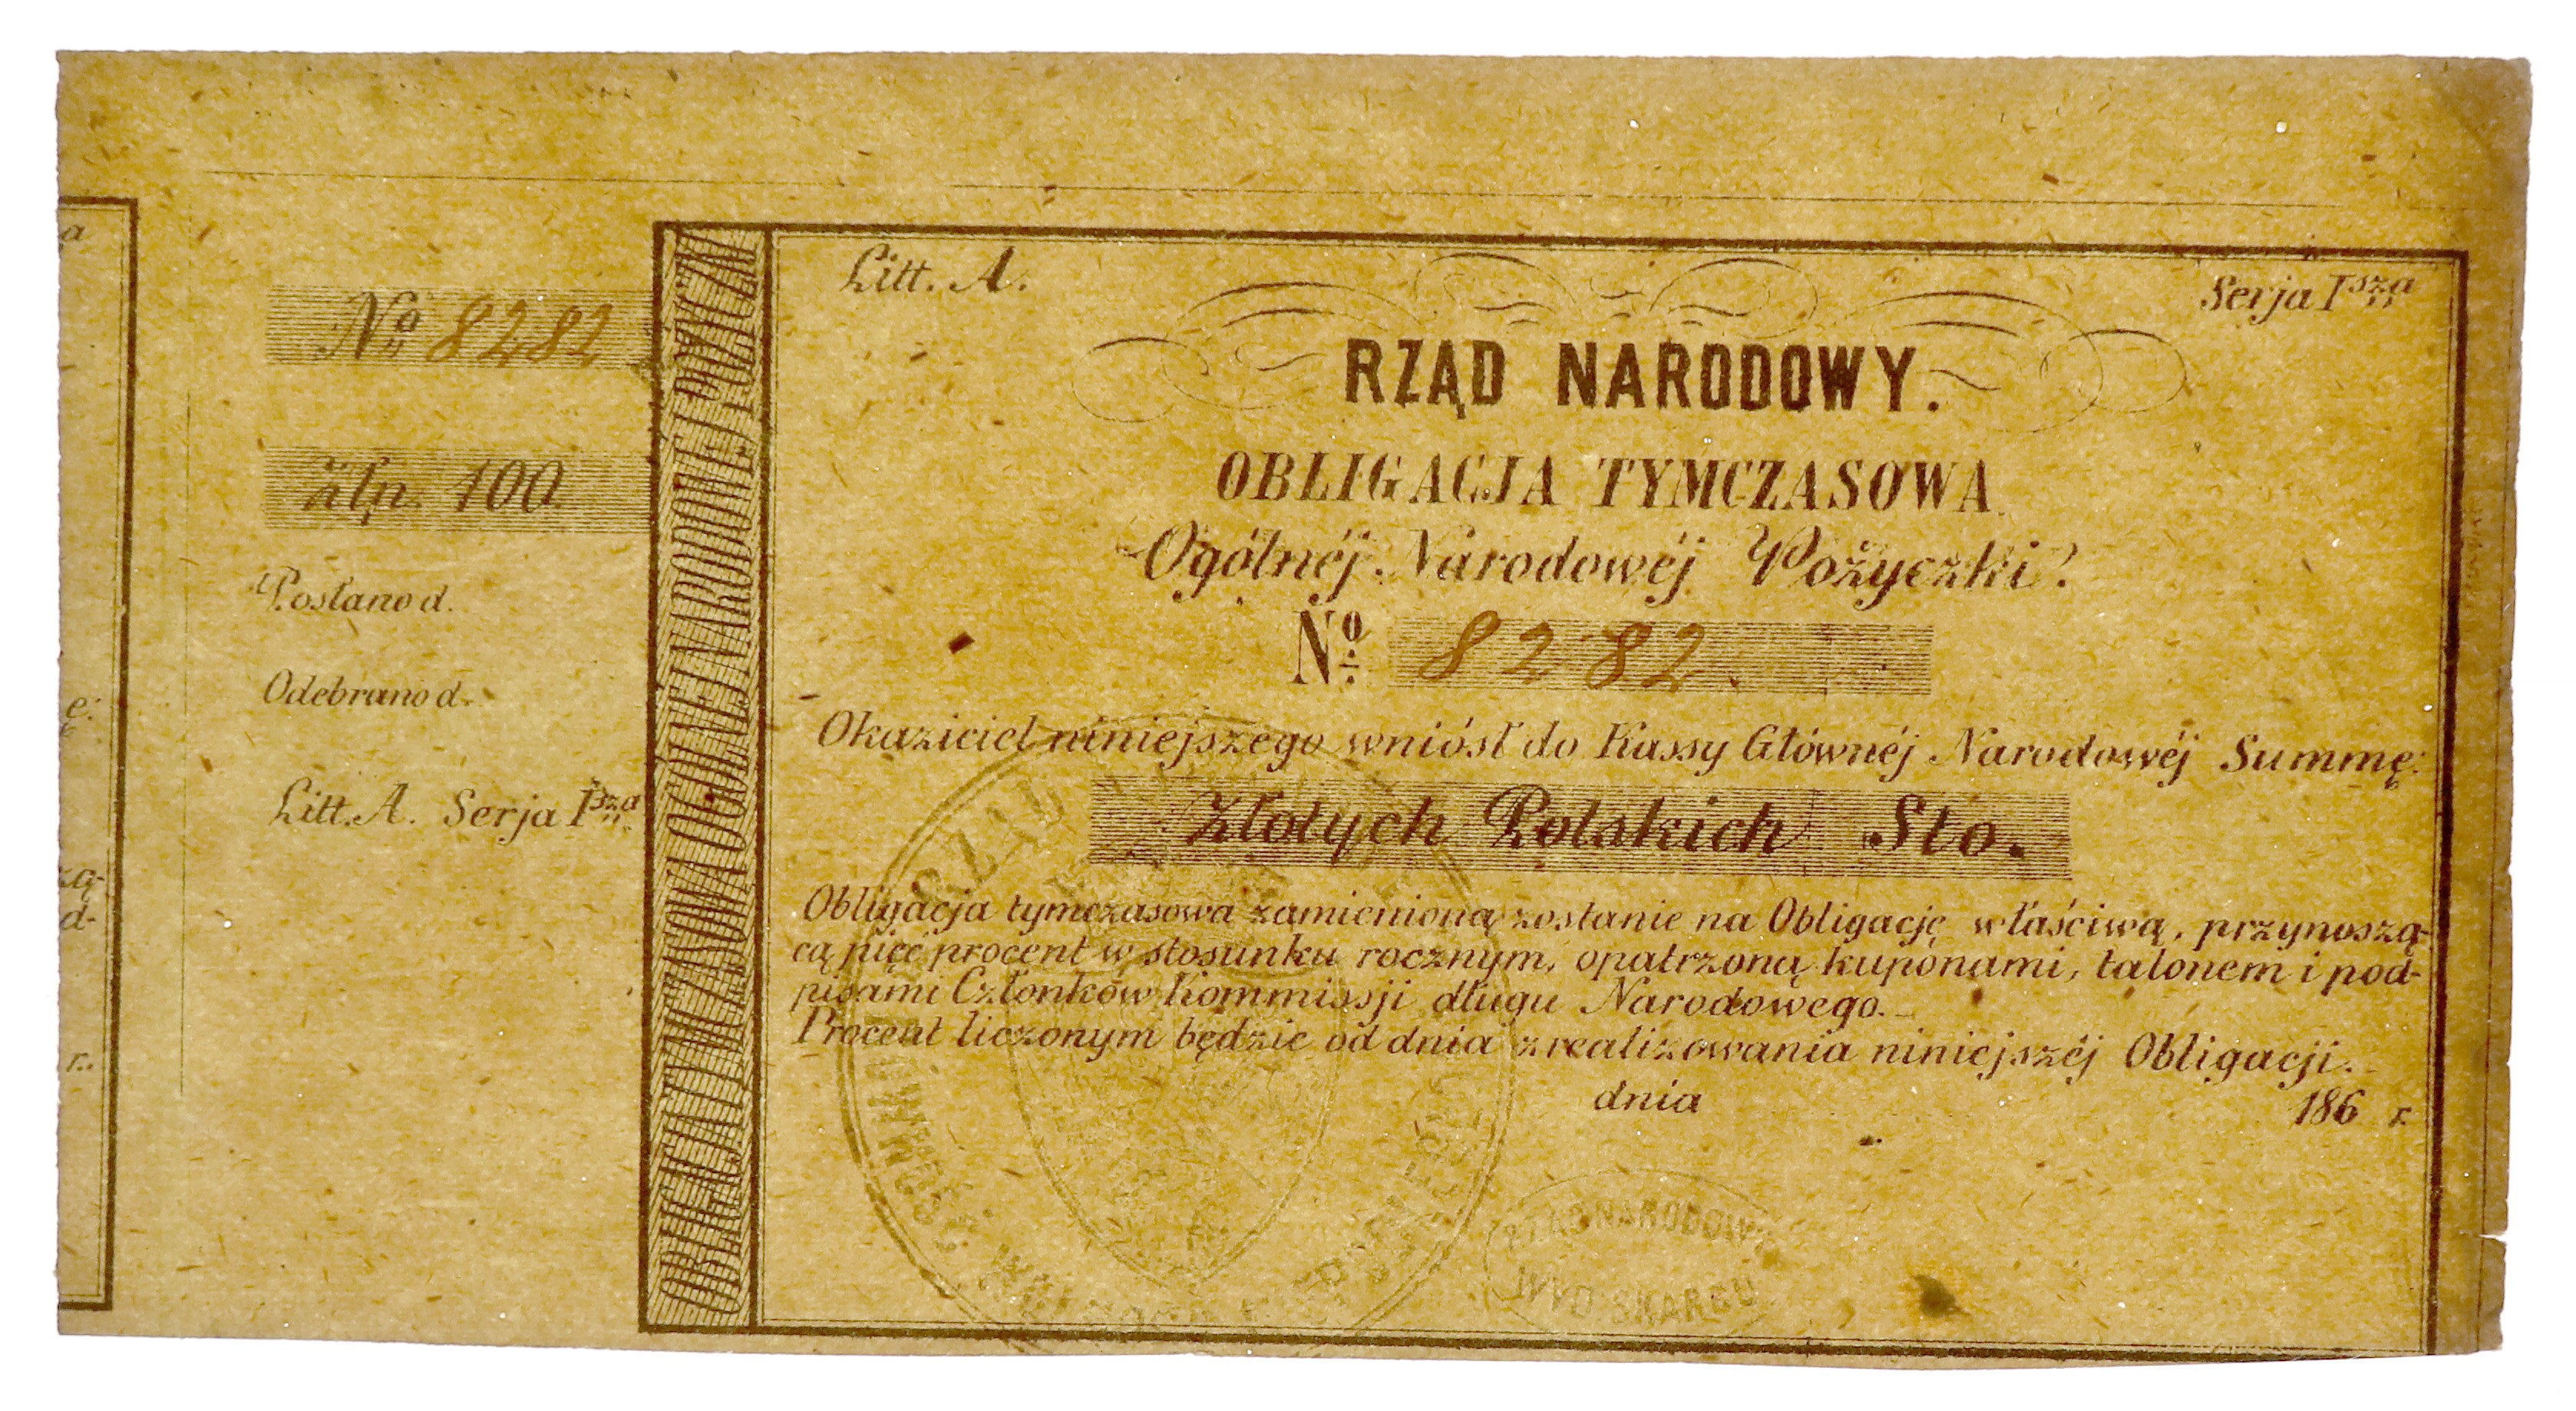 a
e:
zą-
d-
r.
No 8282
złp. 100.
Posłano d.
Odebrano d.
Litt. A. Serja Isza
OBLIGACYA TYMCZASOWA OGÓLNEJ NARODOWEJ POŻYCZKI
Litt. A.
Serja Isza
RZĄD NARODOWY.
OBLIGACJA TYMCZASOWA
Ogólnéj Narodowéj Pożyczki.
No 8282.
Okaziciel niniejszego wniósł do Kassy Głównéj Narodowéj Summę:
Złotych Polskich Sto.
Obligacja tymczasowa zamienioną zostanie na Obligację właściwą, przynoszą-
cą pięć procent w stosunku rocznym, opatrzoną kuponami, talonem i pod-
pisami Członków Kommissji długu Narodowego.
Procent liczonym będzie od dnia zrealizowania niniejszéj Obligacji.
dnia 186 r.
RZĄD
RÓWNOŚĆ WOLNOŚĆ
NARODOWY
WYD SKARBU